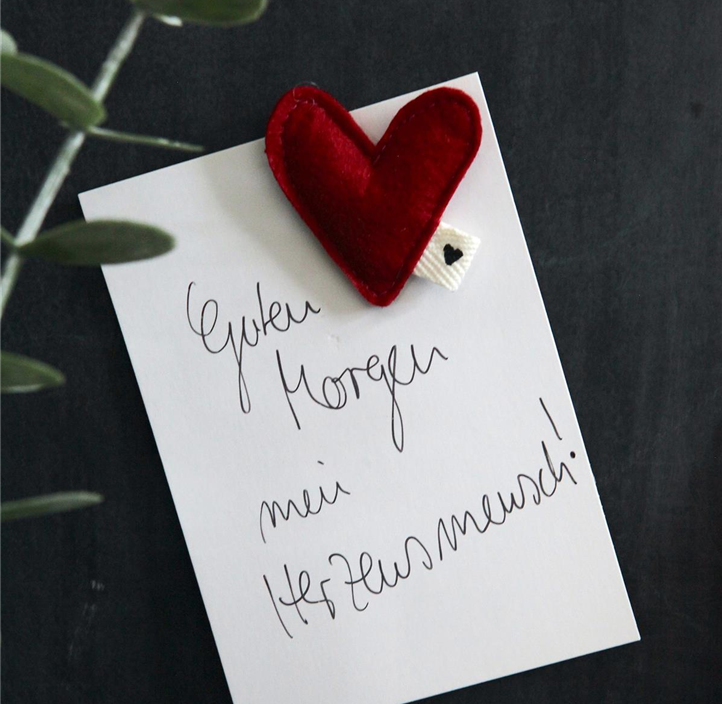 Guten
Morgen
mein
Herzensmensch!